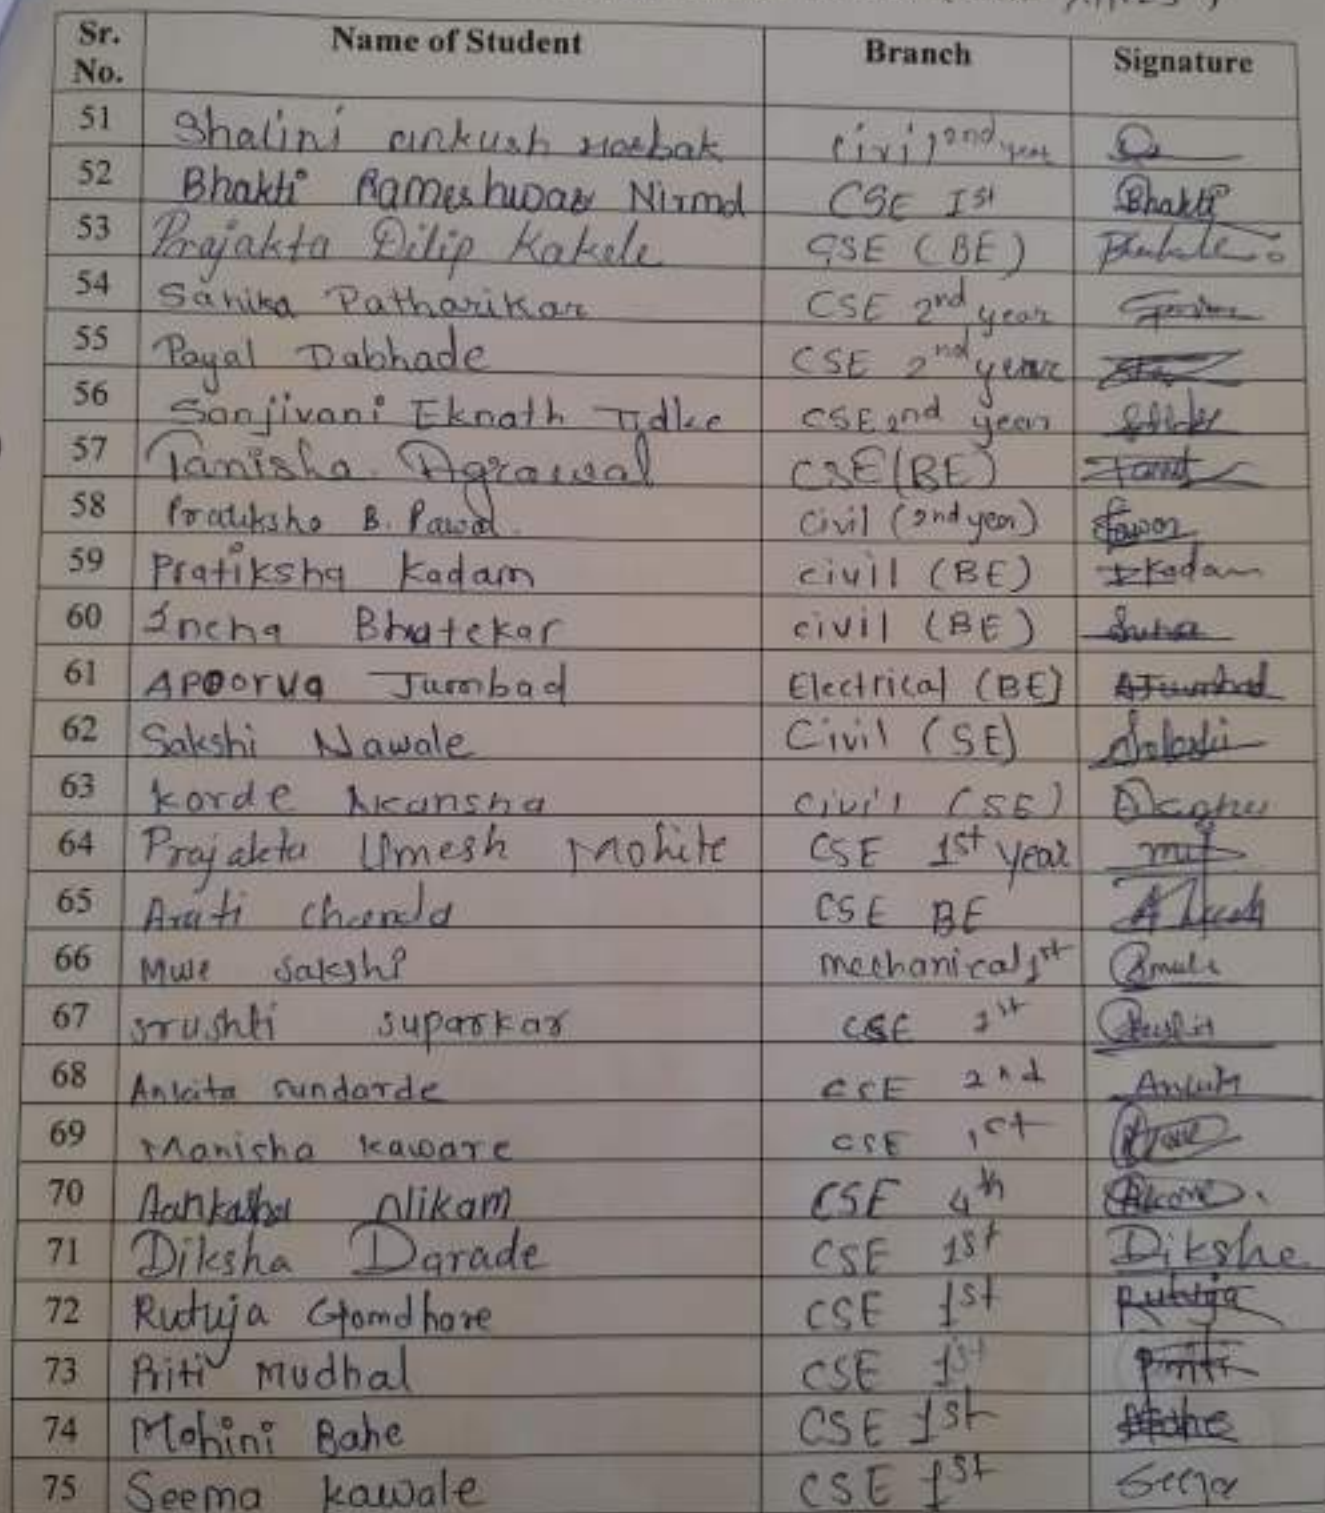 Sr. No. Name of Student Branch Signature
51 Shalini ankush civil 2nd year
52 Bhakti Rameshwar Nirmal CSE Ist Bhakti
53 Prajakta Dilip Kakde CSE (BE)
54 Sanika Patharikar CSE 2nd year
55 Payal Dabhade CSE 2nd year
56 Sanjivani Eknath Tidke CSE 2nd year
57 Tanisha Agrawal CSE (BE)
58 Pratiksha B. Pawar civil (2nd year) Pawar
59 Pratiksha Kadam civil (BE) PKadam
60 Sneha Bhatekar civil (BE)
61 Apoorva Jumbad Electrical (BE) AJumbad
62 Sakshi Nawale Civil (SE)
63 Korde Akansha civil (SE)
64 Prajakta Umesh Mohite CSE 1st year
65 Arati CSE BE
66 Mule Sakshi mechanical 1st
67 Srushti suparkar CSE 1st
68 Ankita sundarde CSE 2nd
69 Manisha Kaware CSE 1st
70 Nikam CSE 4th
71 Diksha Darade CSE 1st Diksha
72 Rutuja Gomdhare CSE 1st Rutuja
73 Priti Mudhal CSE 1st Priti
74 Mohini Bahe CSE 1st
75 Seema Kawale CSE 1st